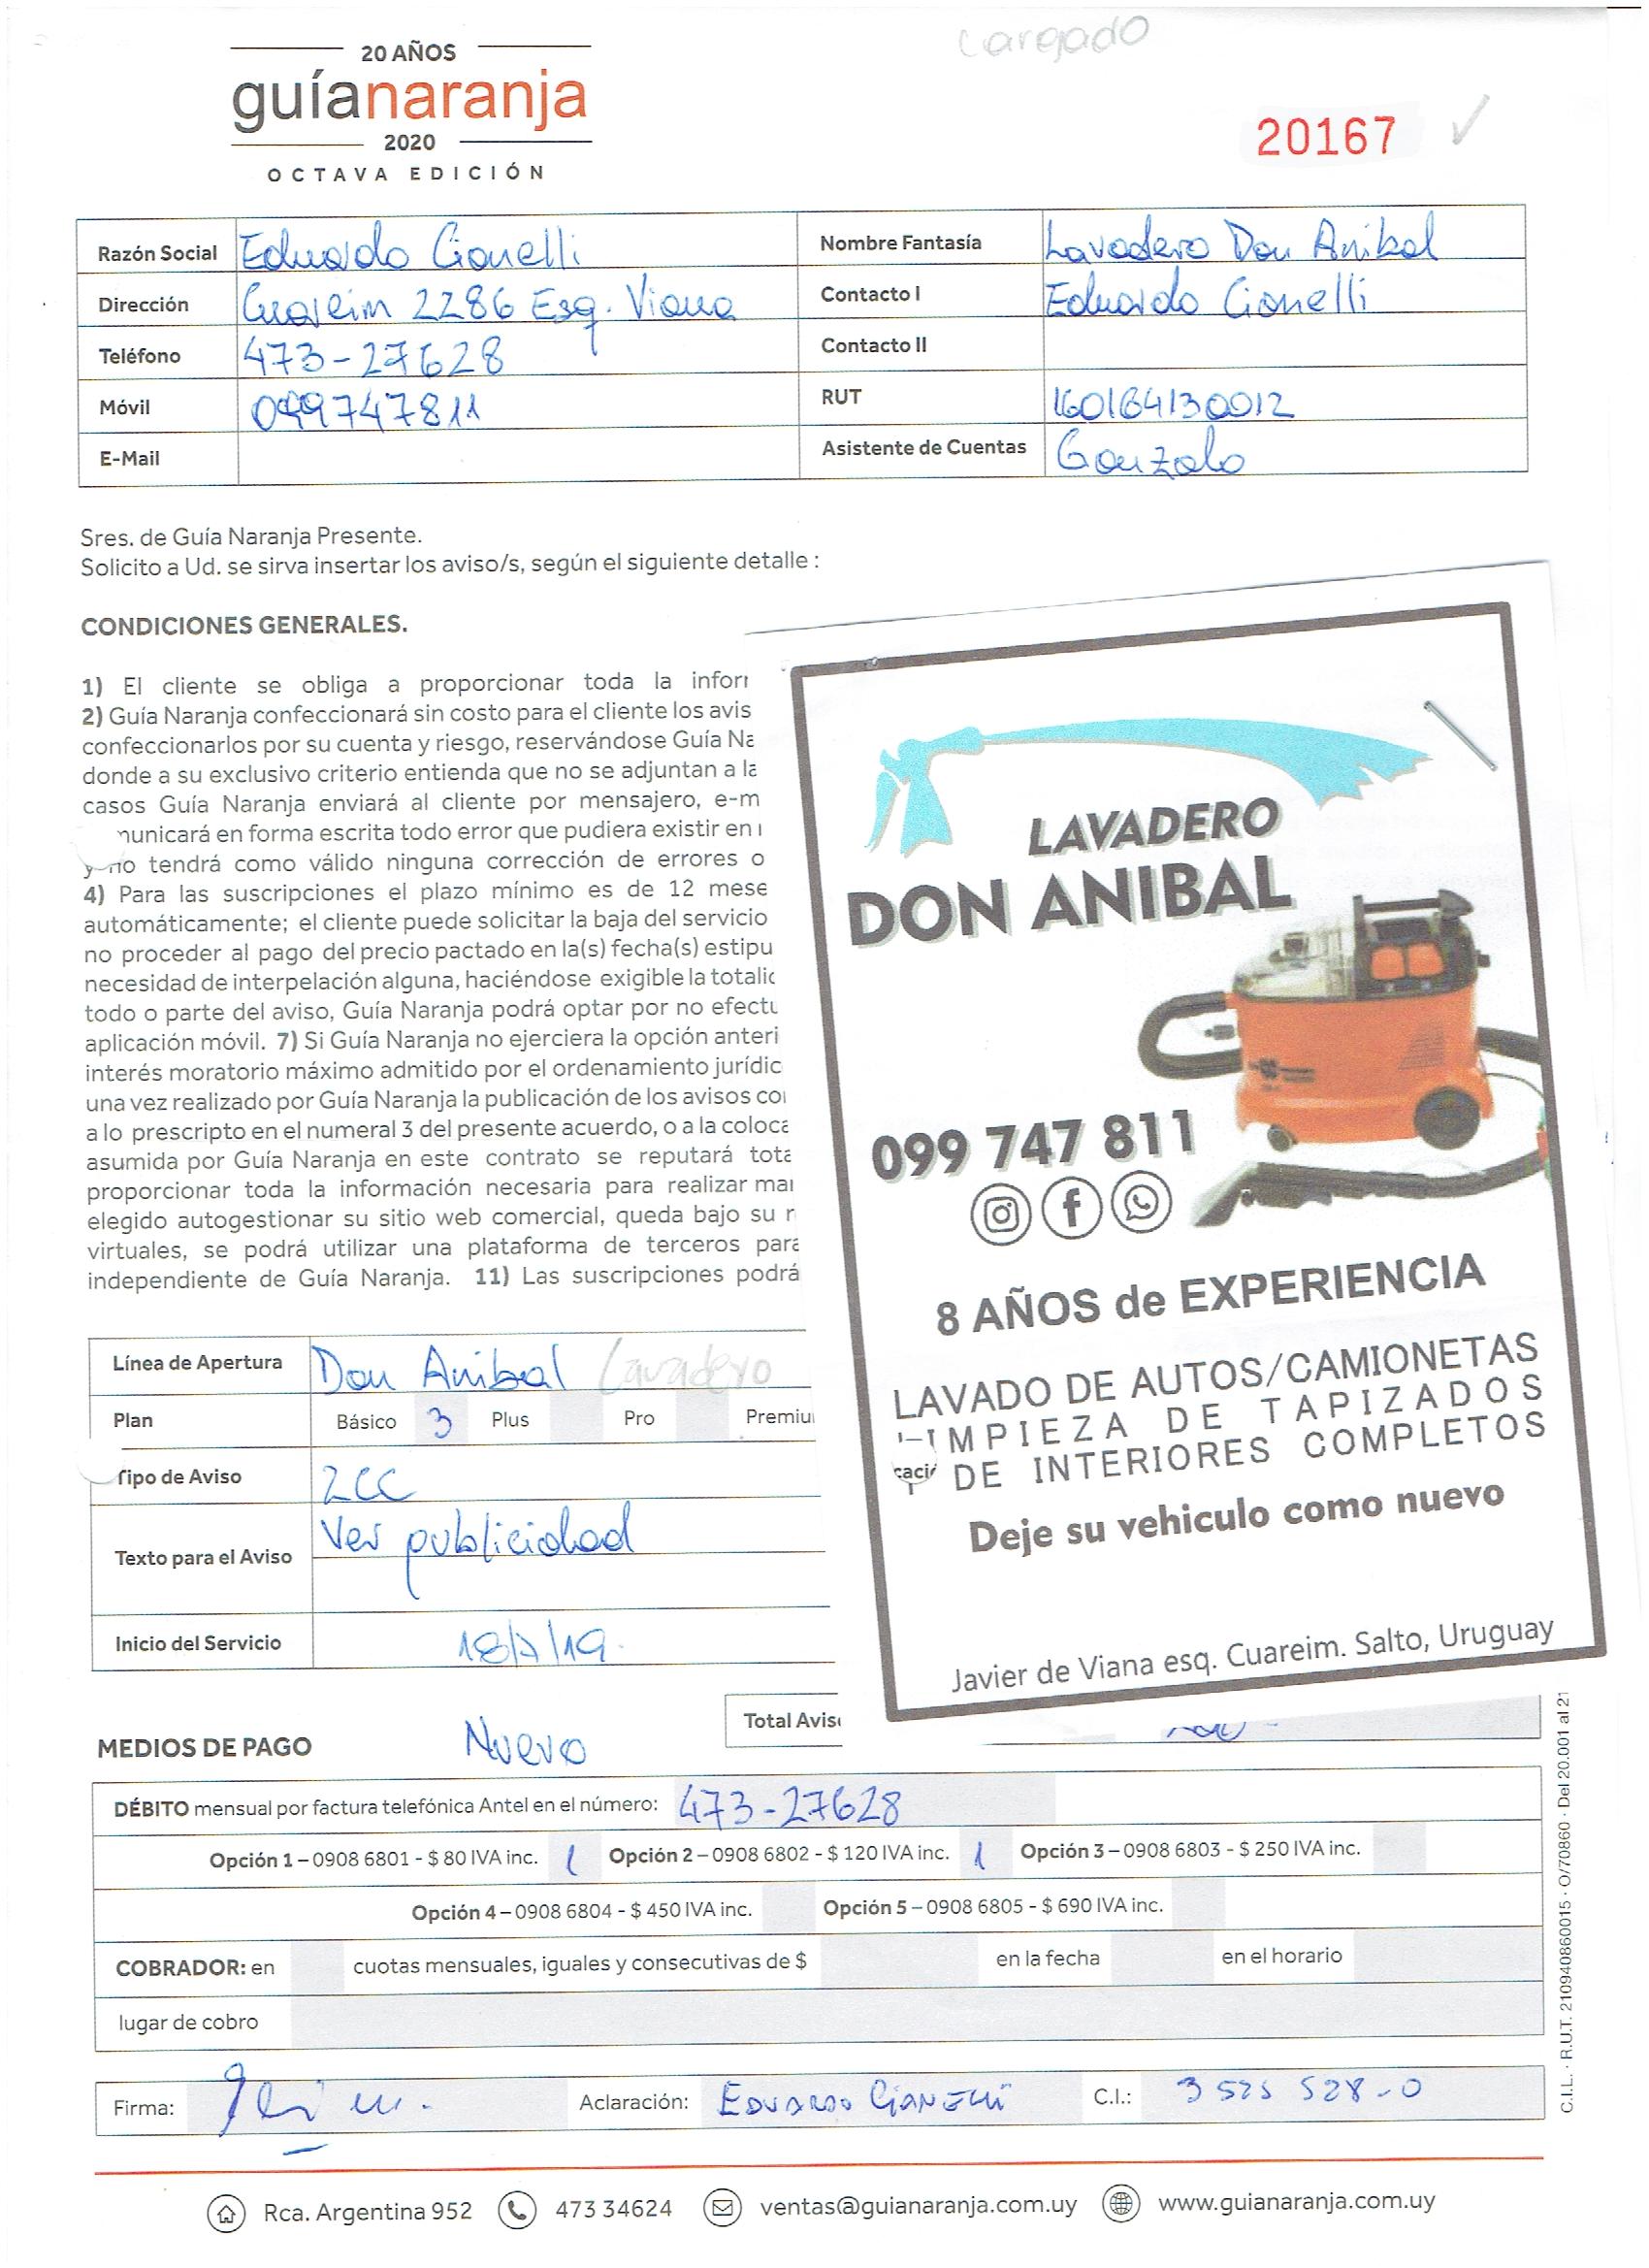 cargado
20 AÑOS
guíanaranja
2020
OCTAVA EDICIÓN
20167
Razón Social Eduardo Cianelli Nombre Fantasía Lavadero Don Anibal
Dirección Cuareim 2286 Esq. Viana Contacto I Eduardo Cianelli
Teléfono 473-27628 Contacto II
Móvil 099747811 RUT 160184130012
E-Mail Asistente de Cuentas Gonzalo
Sres. de Guía Naranja Presente.
Solicito a Ud. se sirva insertar los aviso/s, según el siguiente detalle :
CONDICIONES GENERALES.
1) El cliente se obliga a proporcionar toda la infor
2) Guía Naranja confeccionará sin costo para el cliente los avis
confeccionarlos por su cuenta y riesgo, reservándose Guía Na
donde a su exclusivo criterio entienda que no se adjuntan a la
casos Guía Naranja enviará al cliente por mensajero, e-m
municará en forma escrita todo error que pudiera existir en
y no tendrá como válido ninguna corrección de errores o
4) Para las suscripciones el plazo mínimo es de 12 mese
automáticamente; el cliente puede solicitar la baja del servicio
no proceder al pago del precio pactado en la(s) fecha(s) estipu
necesidad de interpelación alguna, haciéndose exigible la totalid
todo o parte del aviso, Guía Naranja podrá optar por no efectu
aplicación móvil. 7) Si Guía Naranja no ejerciera la opción anteri
interés moratorio máximo admitido por el ordenamiento jurídic
una vez realizado por Guía Naranja la publicación de los avisos co
a lo prescripto en el numeral 3 del presente acuerdo, o a la coloca
asumida por Guía Naranja en este contrato se reputará tota
proporcionar toda la información necesaria para realizar ma
elegido autogestionar su sitio web comercial, queda bajo su r
virtuales, se podrá utilizar una plataforma de terceros para
independiente de Guía Naranja. 11) Las suscripciones podrá
LAVADERO
DON ANIBAL
099 747 811
8 AÑOS de EXPERIENCIA
LAVADO DE AUTOS/CAMIONETAS
LIMPIEZA DE TAPIZADOS
caci DE INTERIORES COMPLETOS
Deje su vehiculo como nuevo
Javier de Viana esq. Cuareim. Salto, Uruguay
Línea de Apertura Don Anibal Lavadero
Plan Básico 3 Plus Pro Premiu
Tipo de Aviso 2CC
Texto para el Aviso Ver publicidad
Inicio del Servicio 18/7/19.
MEDIOS DE PAGO Nuevo Total Avis
DÉBITO mensual por factura telefónica Antel en el número: 473-27628
Opción 1 – 0908 6801 - $ 80 IVA inc. 1 Opción 2 – 0908 6802 - $ 120 IVA inc. 1 Opción 3 – 0908 6803 - $ 250 IVA inc.
Opción 4 – 0908 6804 - $ 450 IVA inc. Opción 5 – 0908 6805 - $ 690 IVA inc.
COBRADOR: en cuotas mensuales, iguales y consecutivas de $ en la fecha en el horario
lugar de cobro
Firma: Aclaración: EDUARDO CIANELLI C.I.: 3 525 528-0
C.I.L. · R.U.T. 210940860015 · O/70860 · Del 20.001 al 21
Rca. Argentina 952 473 34624 ventas@guianaranja.com.uy www.guianaranja.com.uy